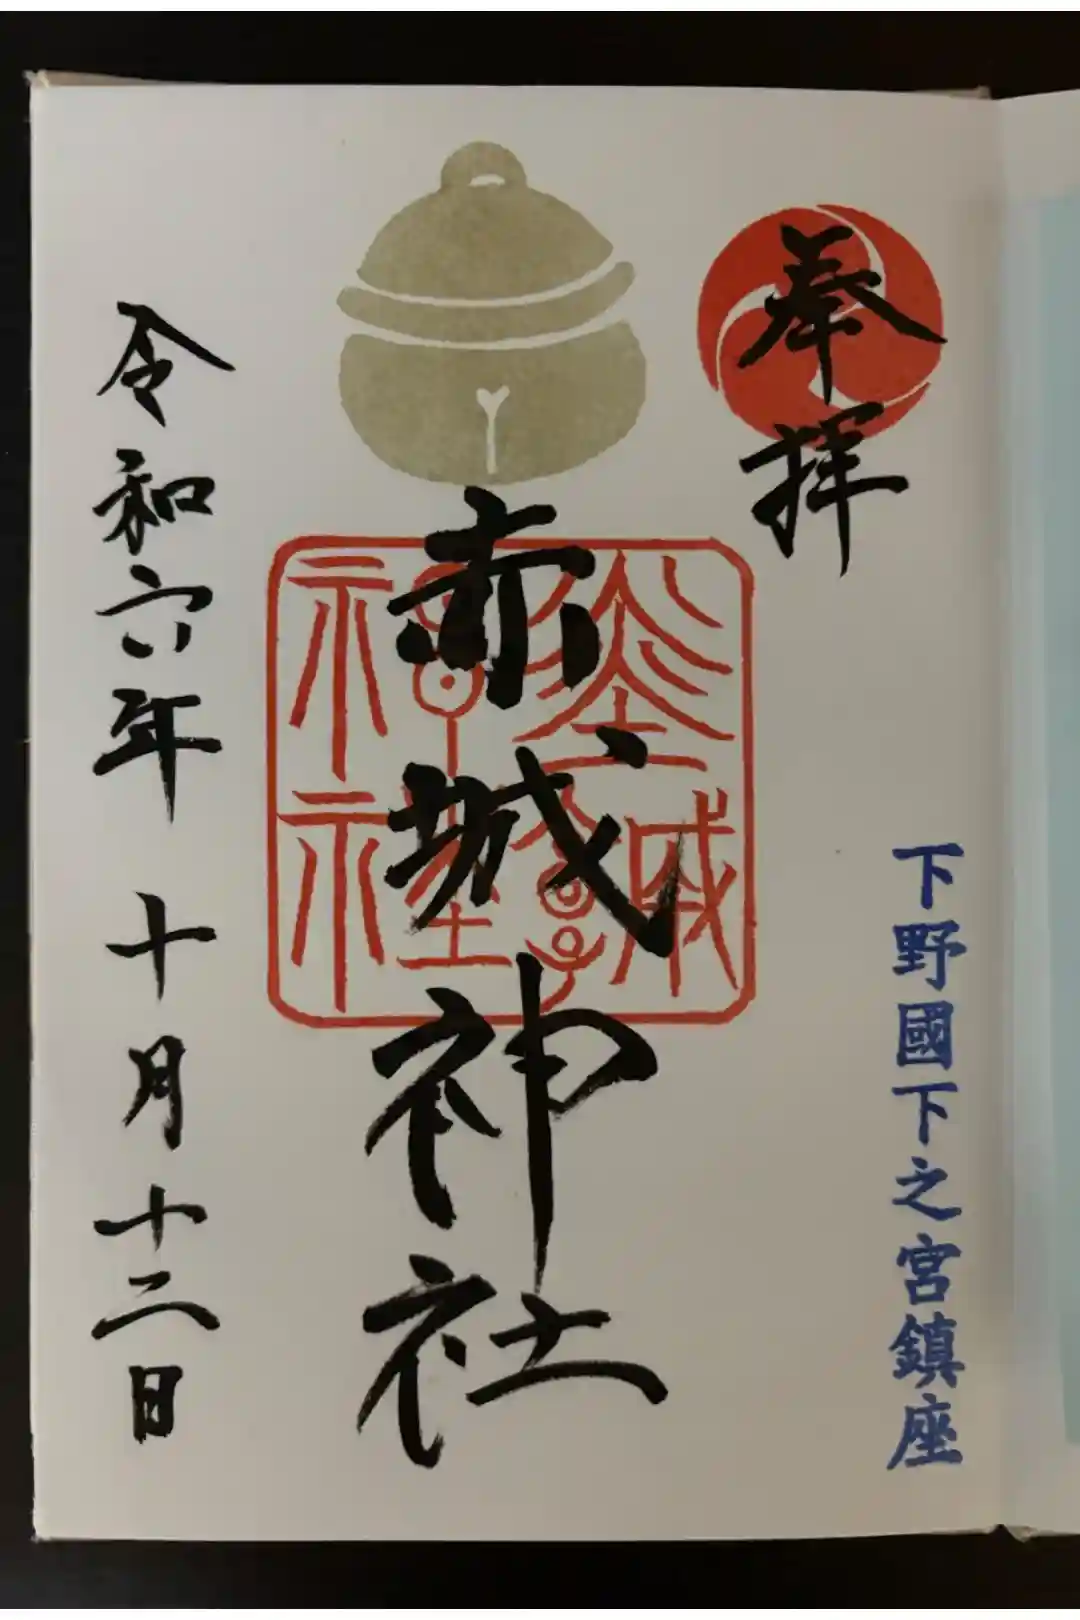 奉拝
下野國下之宮鎮座
赤城神社
令和六年 十月十二日